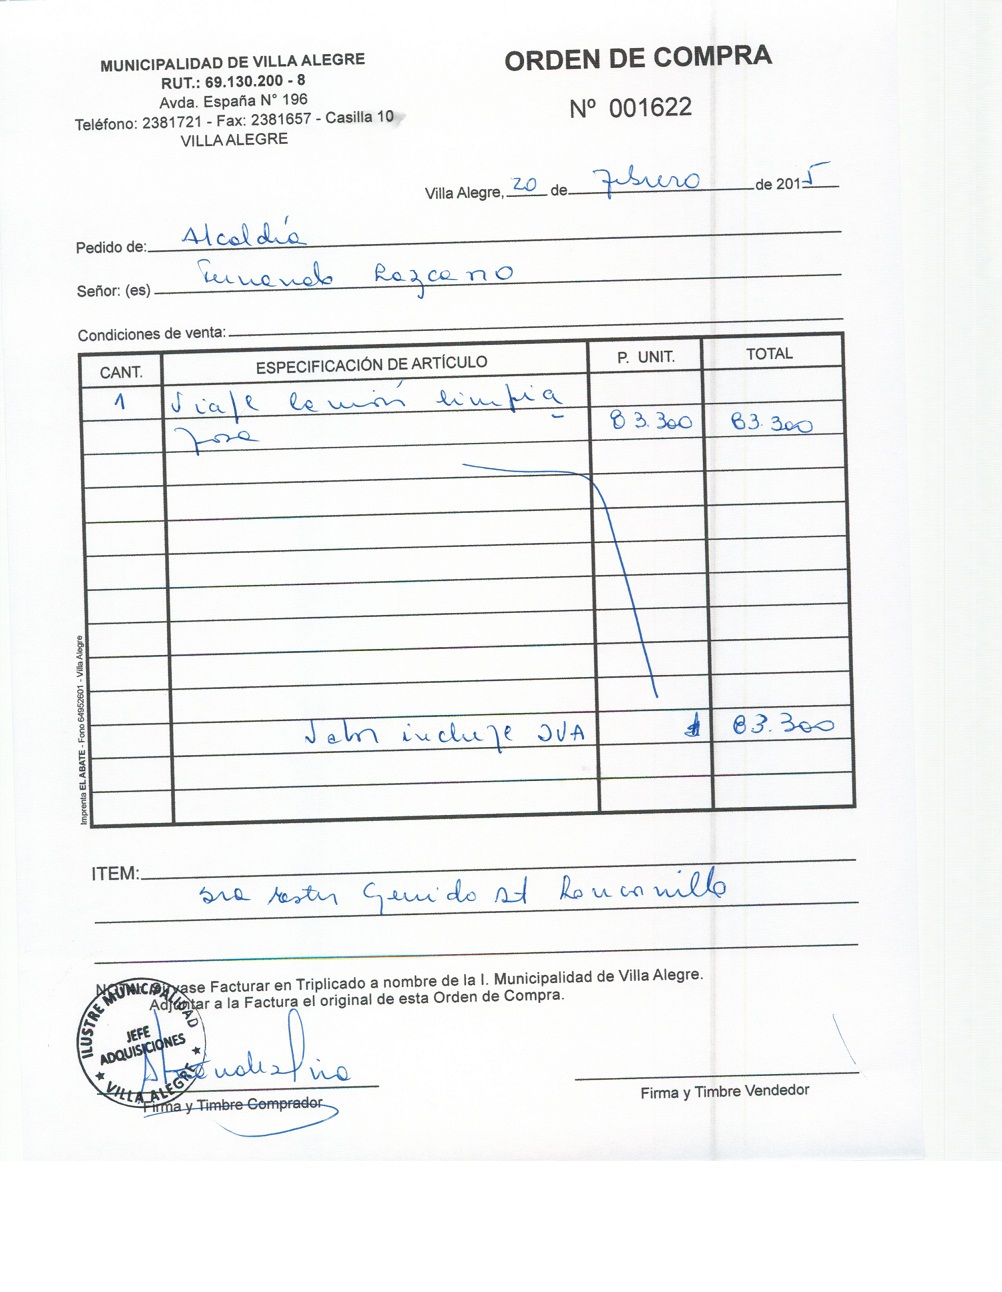 MUNICIPALIDAD DE VILLA ALEGRE
RUT.: 69.130.200 - 8
Avda. España N° 196
Teléfono: 2381721 - Fax: 2381657 - Casilla 10
VILLA ALEGRE
ORDEN DE COMPRA
Nº 001622
Villa Alegre, 20 de Febrero de 2015
Pedido de: Alcaldía
Señor: (es) Fernando Lazcano
Condiciones de venta:
CANT. ESPECIFICACIÓN DE ARTÍCULO P. UNIT. TOTAL
1 Viaje camión limpia
fosa 83.300 83.300
Valor incluye IVA $ 83.300
Imprenta EL ABATE - Fono 64952601 - Villa Alegre
ITEM:
Sra Ester Garrido
Facturar en Triplicado a nombre de la I. Municipalidad de Villa Alegre.
Adjuntar a la Factura el original de esta Orden de Compra.
ILUSTRE MUNICIPALIDAD
JEFE
ADQUISICIONES
VILLA ALEGRE
Firma y Timbre Comprador
Firma y Timbre Vendedor